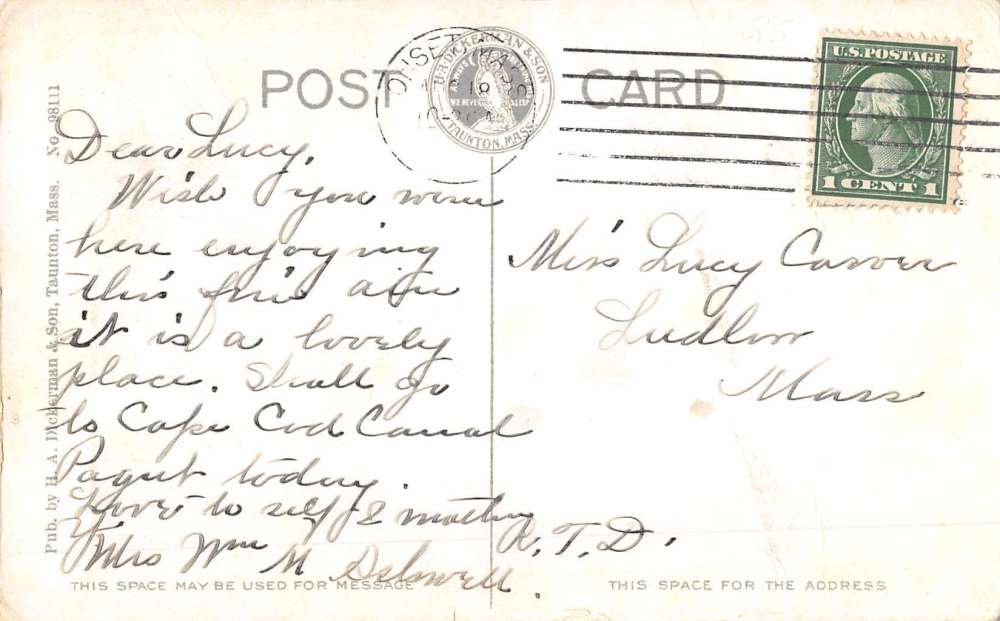 POST CARD
H. A. DICKERMAN & SON
TAUNTON, MASS.
ONSET, MASS.
U.S. POSTAGE
1 CENT 1
Pub. by H. A. Dickerman & Son, Taunton, Mass. No. 98111
Dear Lucy,
Wish you were
here enjoying
this fine air
it is a lovely
place. Shall go
to Cape Cod Canal
today.
Love to self & mother
Mrs Wm M
THIS SPACE MAY BE USED FOR MESSAGE
Miss Lucy Carver
Ludlow
Mass
THIS SPACE FOR THE ADDRESS